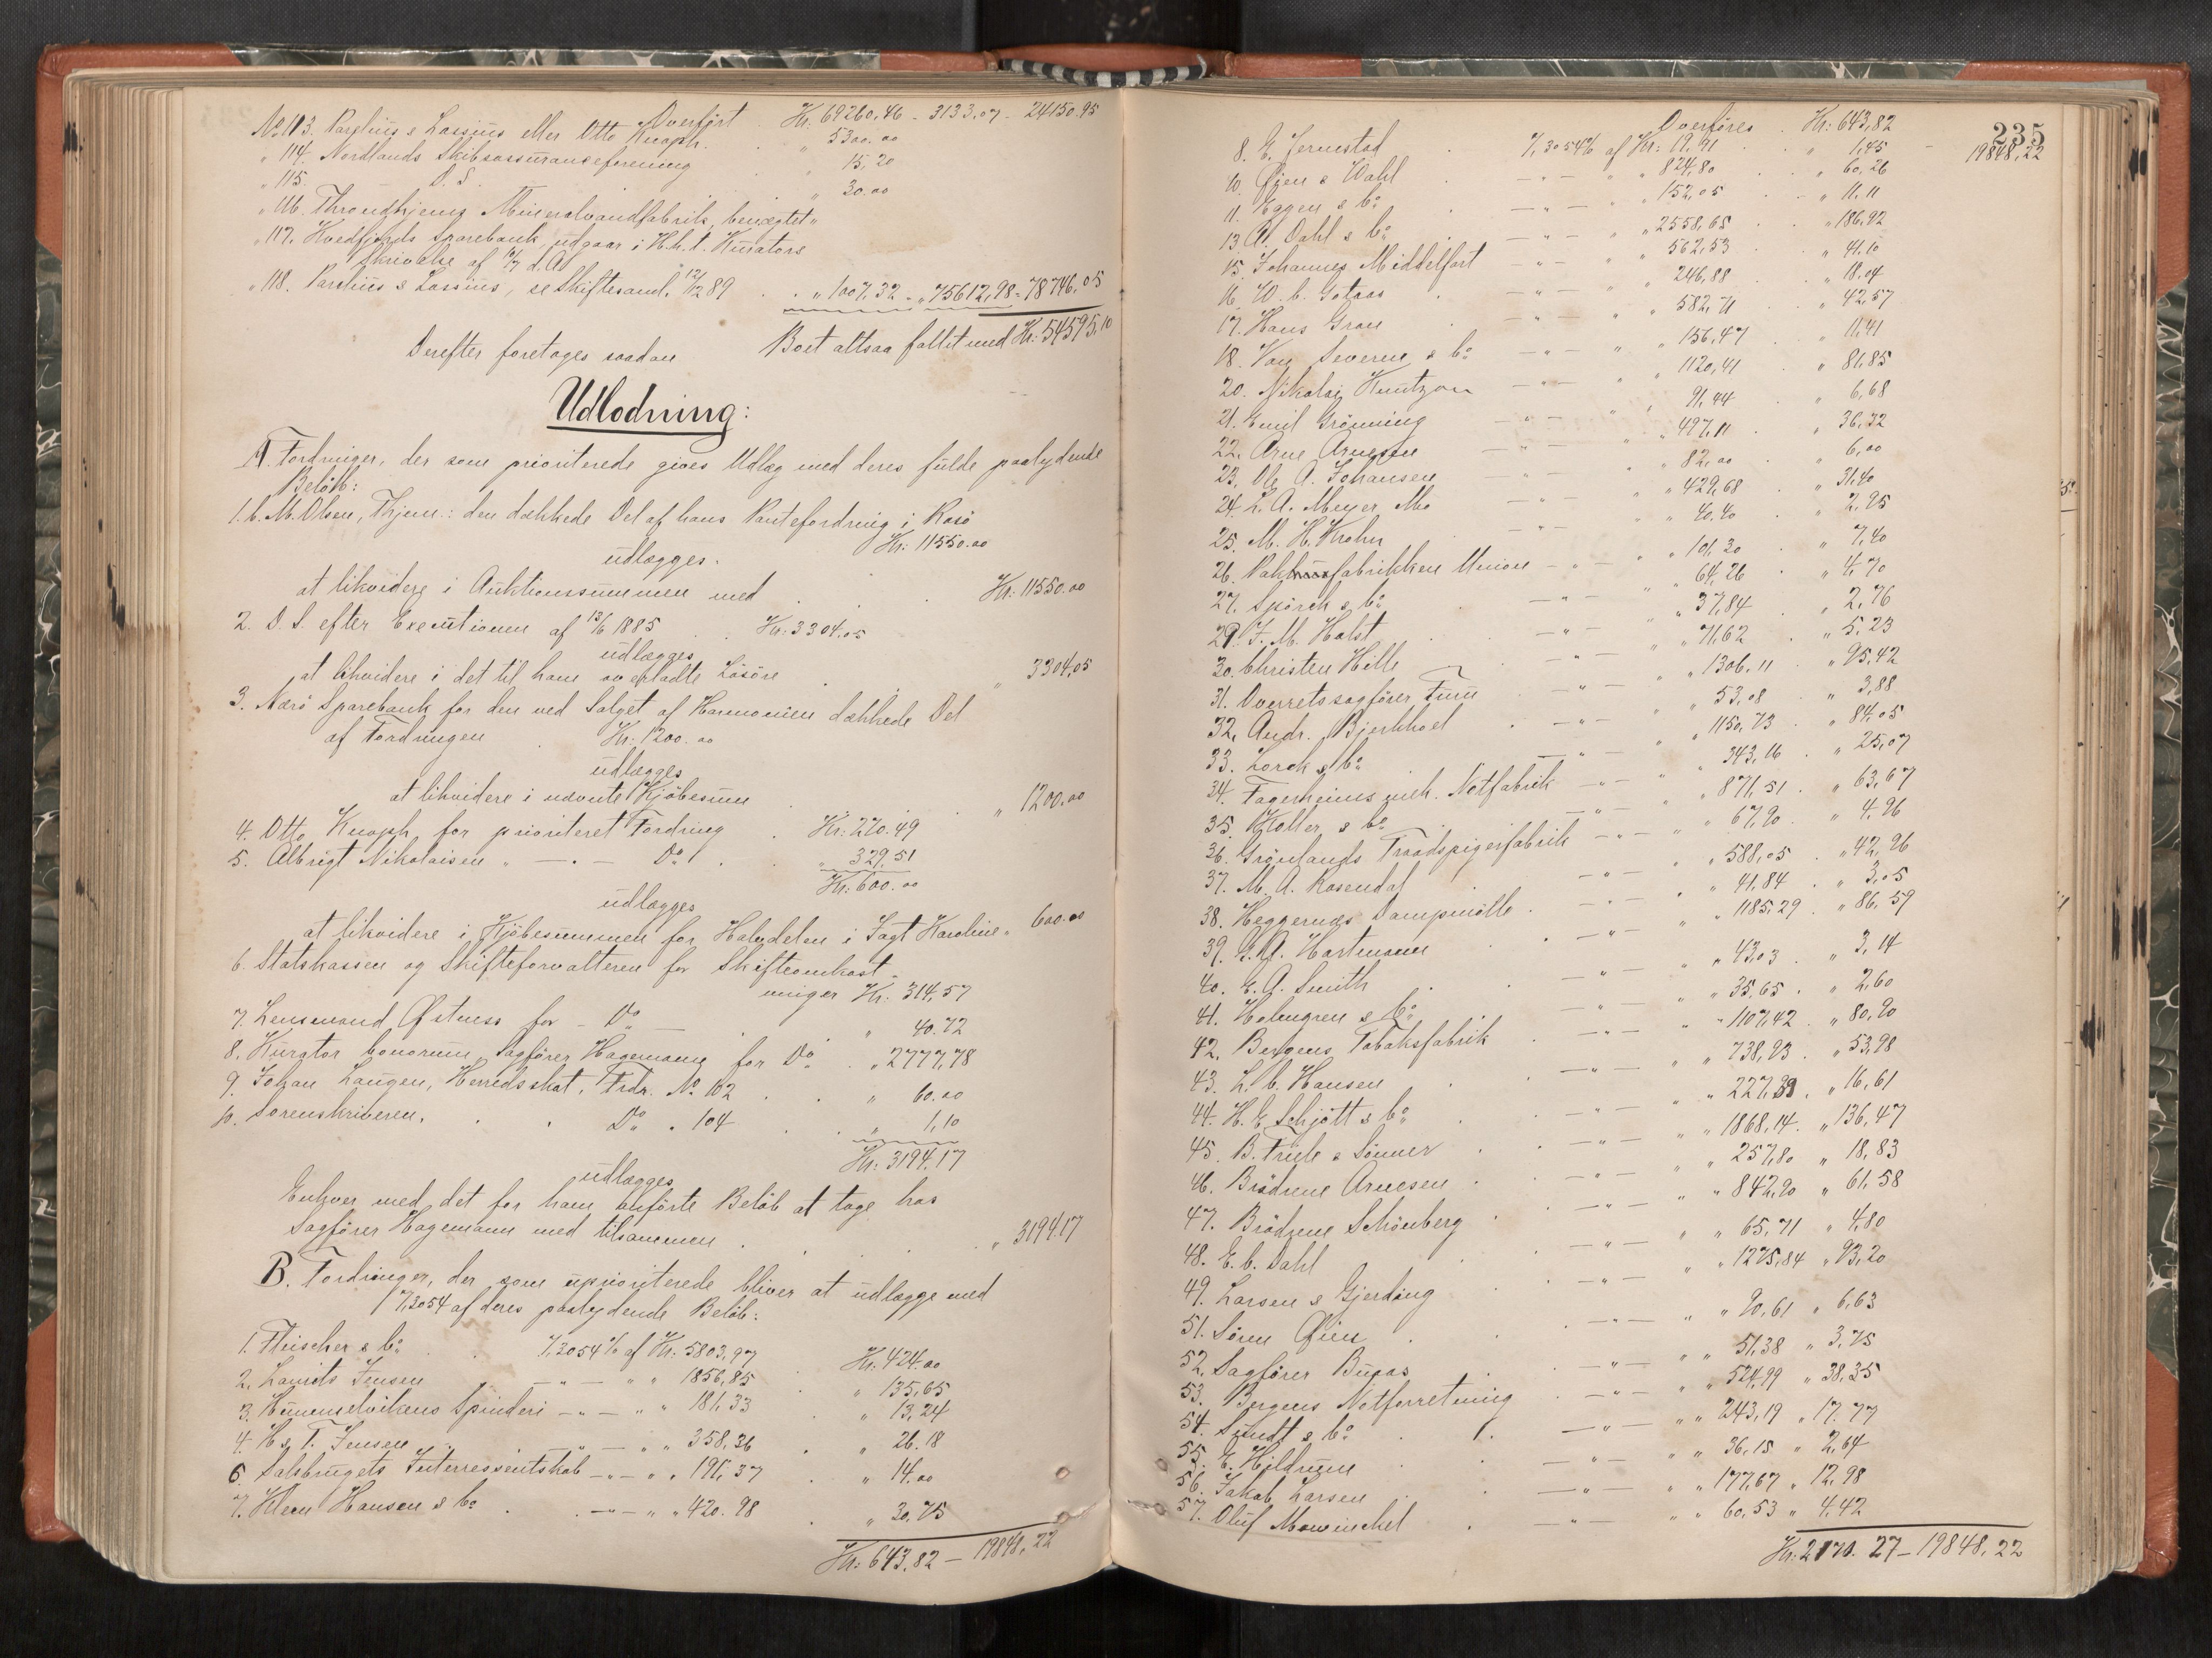 Overført Kr. 69260,46 - 3133,07 - 24150.95
No 113. Parelius & Lossius eller Otto Knoph. " 5300.00
" 114. Nordlands Skibsassuranceforening " 15,20
" 115. D. S. " 30.00
" 116. Throndhjems Mineralvandfabrik, benægtet "
" 117. Kvedfjords Sparebank, udgaar i H. h. t. Kurators
Skrivelse af d. A.
" 118. Parelius & Lossius, se Skiftesaml. 12/12 89 " 1007,32 - " 75612,98 = 78746,05
Boet altsaa fallit med Kr: 54595,10
Derefter foretages saadan
Udlodning:
A. Fordringer, der som prioriterede gives Udlæg med deres fulde paalydende
Beløb:
1. C. M. Olsen, Thjem: den dækkede Del af hans Pantefordring i Rosø
Kr: 11550.00
udlægges.
at likvidere i Auktionssummen med Kr: 11550.00
2. D. S. efter Executionen af 13/6 1885 Kr: 3304.05
udlægges
at likvidere i det til ham overladte Løsøre " 3304,05
3. Nærø Sparebank for den ved Salget af Harmonien dækkede Del
af Fordringen Kr: 1200.00
udlægges
at likvidere i nævnte Kjøbesum " 1200.00
4. Otto Knoph for prioriteret Fordring Kr: 270.49
5. Albrigt Nikolaisen " — " — Do " 329,51
Kr: 600.00
udlægges
at likvidere i Kjøbesummen for Halvdelen i Jagt Karoline " 600.00
6. Statskassen og Skifteforvalteren for Skifteomkost-
ninger Kr. 314,57
7. Lensmand Østnes for - Do — " 40.72
8. Kurator bonorum, Sagfører Hagemann for Do " 2777,78
9. Johan Laugen, Herredsskat, Fordr. No 102 " 60.00
10. Sorenskriveren. Do " 104 " 1,10
Kr: 3194.17
udlægges
Enhver med det for ham anførte Beløb at tage hos
Sagfører Hagemann med tilsammen " 3194.17
B. Fordringer, der som uprioriterede bliver at udlægge med
7,3054 af deres paalydende Beløb:
1. Fleischer & Co 7,3054% af Kr: 5803,97 Kr: 424.00
2. Laurits Jensen — " — " " 1856,85 " 135,65
3. Hummelvikens Spinderi — " — " " 181,33 " 13,24
4. H & T. Jensen — " — " " 358,36 " 26.18
6. Salsbrugets Interessentskab — " — " " 191,37 " 14.00
7. Klem Hansen & Co — " — " " 420.98 " 30,75
Kr: 643,82 — 19848,22
235
Overføres Kr: 643,82 - 19848,22
8. E. Jernestad 7,3054% af Kr: 19.91 " 1,45
10. Øjen & Wahl — " — " " 824,80 " 60,26
11. Eggen & Co — " — " " 152,05 " 11,11
13. A. Dahl & Co — " — " " 2558,68 " 186,92
15. Johannes Middelfart — " — " " 562,53 " 41.10
16. W. C. Gotaas — " — " " 246,88 " 18.04
17. Hans Gran — " — " " 582,71 " 42,57
18. Von Severen & Co — " — " " 156,47 " 11,41
20. Nikolai Knutzon — " — " " 1120,41 " 81,85
21. Emil Grønning — " — " " 91,44 " 6,68
22. Arne Arnesen — " — " " 497,11 " 36,32
23. Ole A. Johansen — " — " " 82,00 " 6,00
24. L. A. Meyer Mo — " — " " 429,68 " 31,40
25. M. H. Krohn — " — " " 40.40 " 2,95
26. Pakfabrikken Union — " — " " 101,30 " 7,40
27. Spørck & Co — " — " " 64,26 " 4,70
29. J. M. Holst — " — " " 37,84 " 2,76
30. Christen Hille — " — " " 71,62 " 5,23
31. Overretssagfører Finn — " — " " 1306.11 " 95,42
32. Andr. Bjerkhoel — " — " " 53,08 " 3,88
33. Lorck & Co — " — " " 1150,73 " 84,05
34. Fagerheims mek. Notfabrik — " — " " 343,16 " 25,07
35. Møller & Co — " — " " 871,51 " 63,67
36. Grønlands Traadspigerfabrik — " — " " 67,90 " 4,96
37. M. A. Rosendal — " — " " 588,05 " 42,96
38. Heggernæs Dampmølle — " — " " 41,84 " 3,05
39. G. A. Hartmann — " — " " 1185,29 " 86,59
40. E. A. Smith — " — " " 43,03 " 3,14
41. Holmgren & Co — " — " " 35,65 " 2,60
42. Bergens Tobaksfabrik — " — " " 1107,42 " 80,90
43. L. C. Hansen — " — " " 738,93 " 53,98
44. H. E. Schjøtt & Co — " — " " 227,39 " 16,61
45. B. Friele & Sønner — " — " " 1868,14 " 136,47
46. Brødrene Arnesen — " — " " 257,80 " 18,83
47. Brødrene Schønberg — " — " " 842,90 " 61,58
48. E. C. Dahl — " — " " 65,71 " 4,80
49. Larsen & Gjerding — " — " " 1275,84 " 93,20
51. Søren Øien — " — " " 90,61 " 6,63
52. Sagfører Bugas — " — " " 51,38 " 3,75
53. Bergens Notforretning — " — " " 524,99 " 38,35
54. Sundt & Co — " — " " 243,19 " 17.77
55. E. Hildrum — " — " " 36,15 " 2,64
56. Jakob Larsen — " — " " 177,67 " 12,98
57. Oluf Mowinckel — " — " " 60,53 " 4,42
Kr: 2170.27 — 19848,22